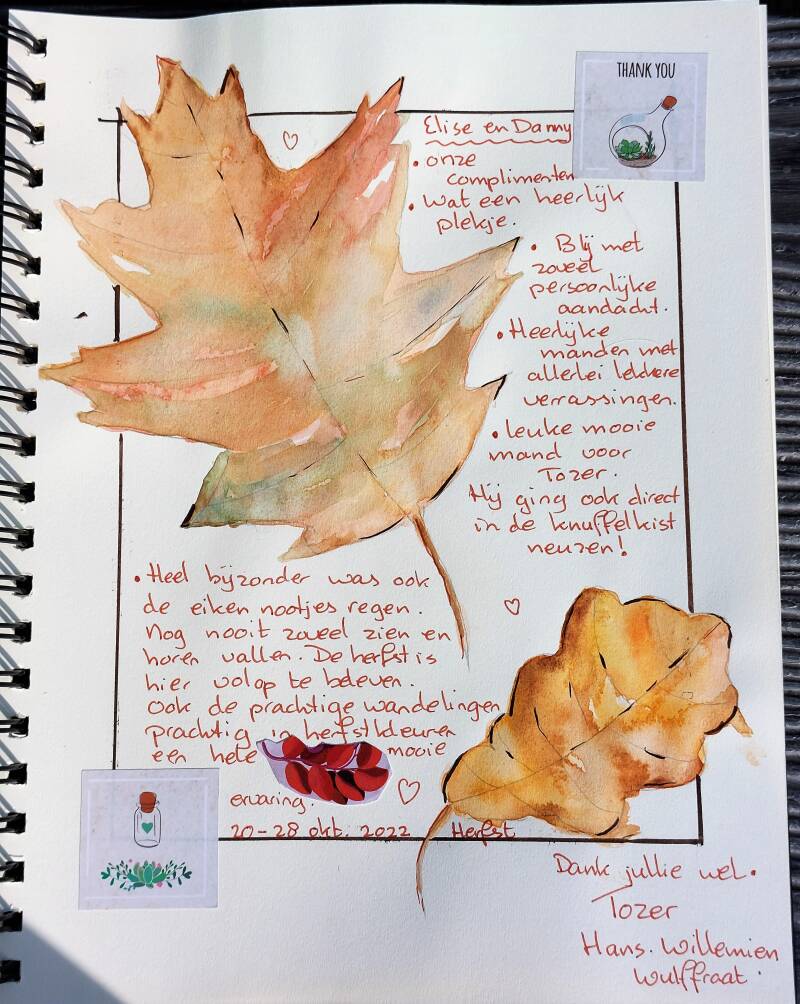 THANK YOU
Elise en Danny
• onze
complimenten
• Wat een heerlijk
plekje.
• Blij met
zoveel
persoonlijke
aandacht.
• Heerlijke
manden met
allerlei lekkere
verrassingen.
• leuke mooie
mand voor
Tozer.
Hij ging ook direct
in de knuffelkist
neuzen!
• Heel bijzonder was ook
de eiken nootjes regen.
Nog nooit zoveel zien en
horen vallen. De herfst is
hier volop te beleven.
Ook de prachtige wandelingen
prachtig in herfstkleuren
een hele mooie
ervaring.
20-28 okt. 2022 Herfst
Dank jullie wel.
Tozer
Hans. Willemien
Wulffraat